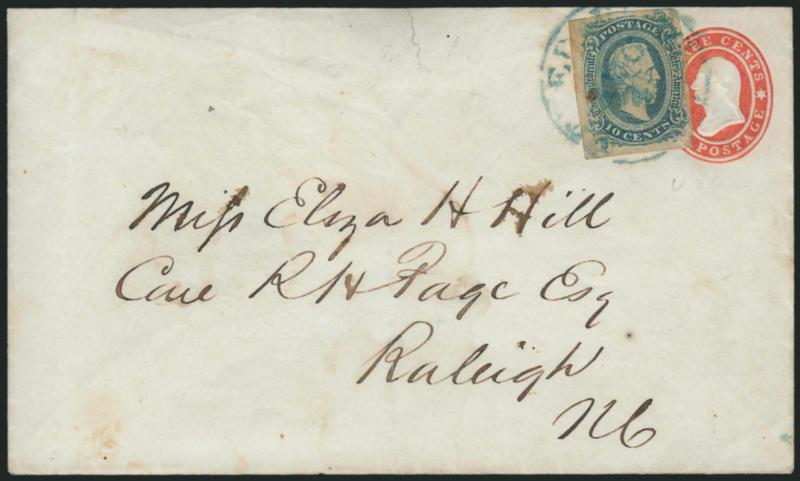 POSTAGE
10 CENTS
CENTS
POSTAGE
Miss Eliza H Hill
Care R H Page Esq
Raleigh
NC